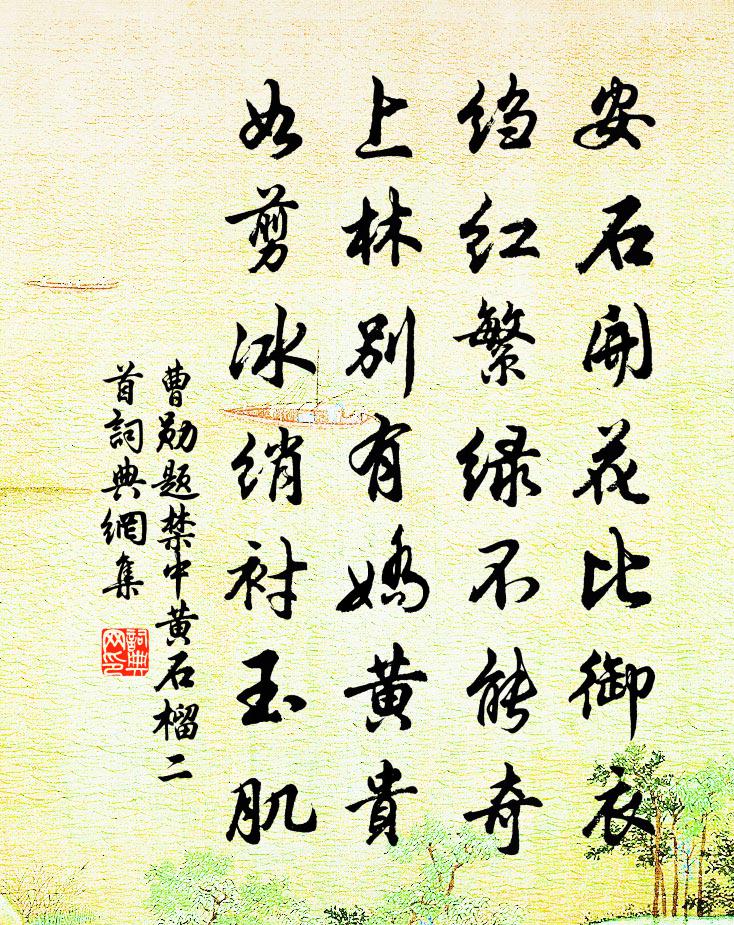 安石開花比御衣
绉红繁绿不能奇
上林别有嬌黄貴
如剪冰绡衬玉肌
曹勋题禁中黄石榴二
首詞典網集
詞典网印